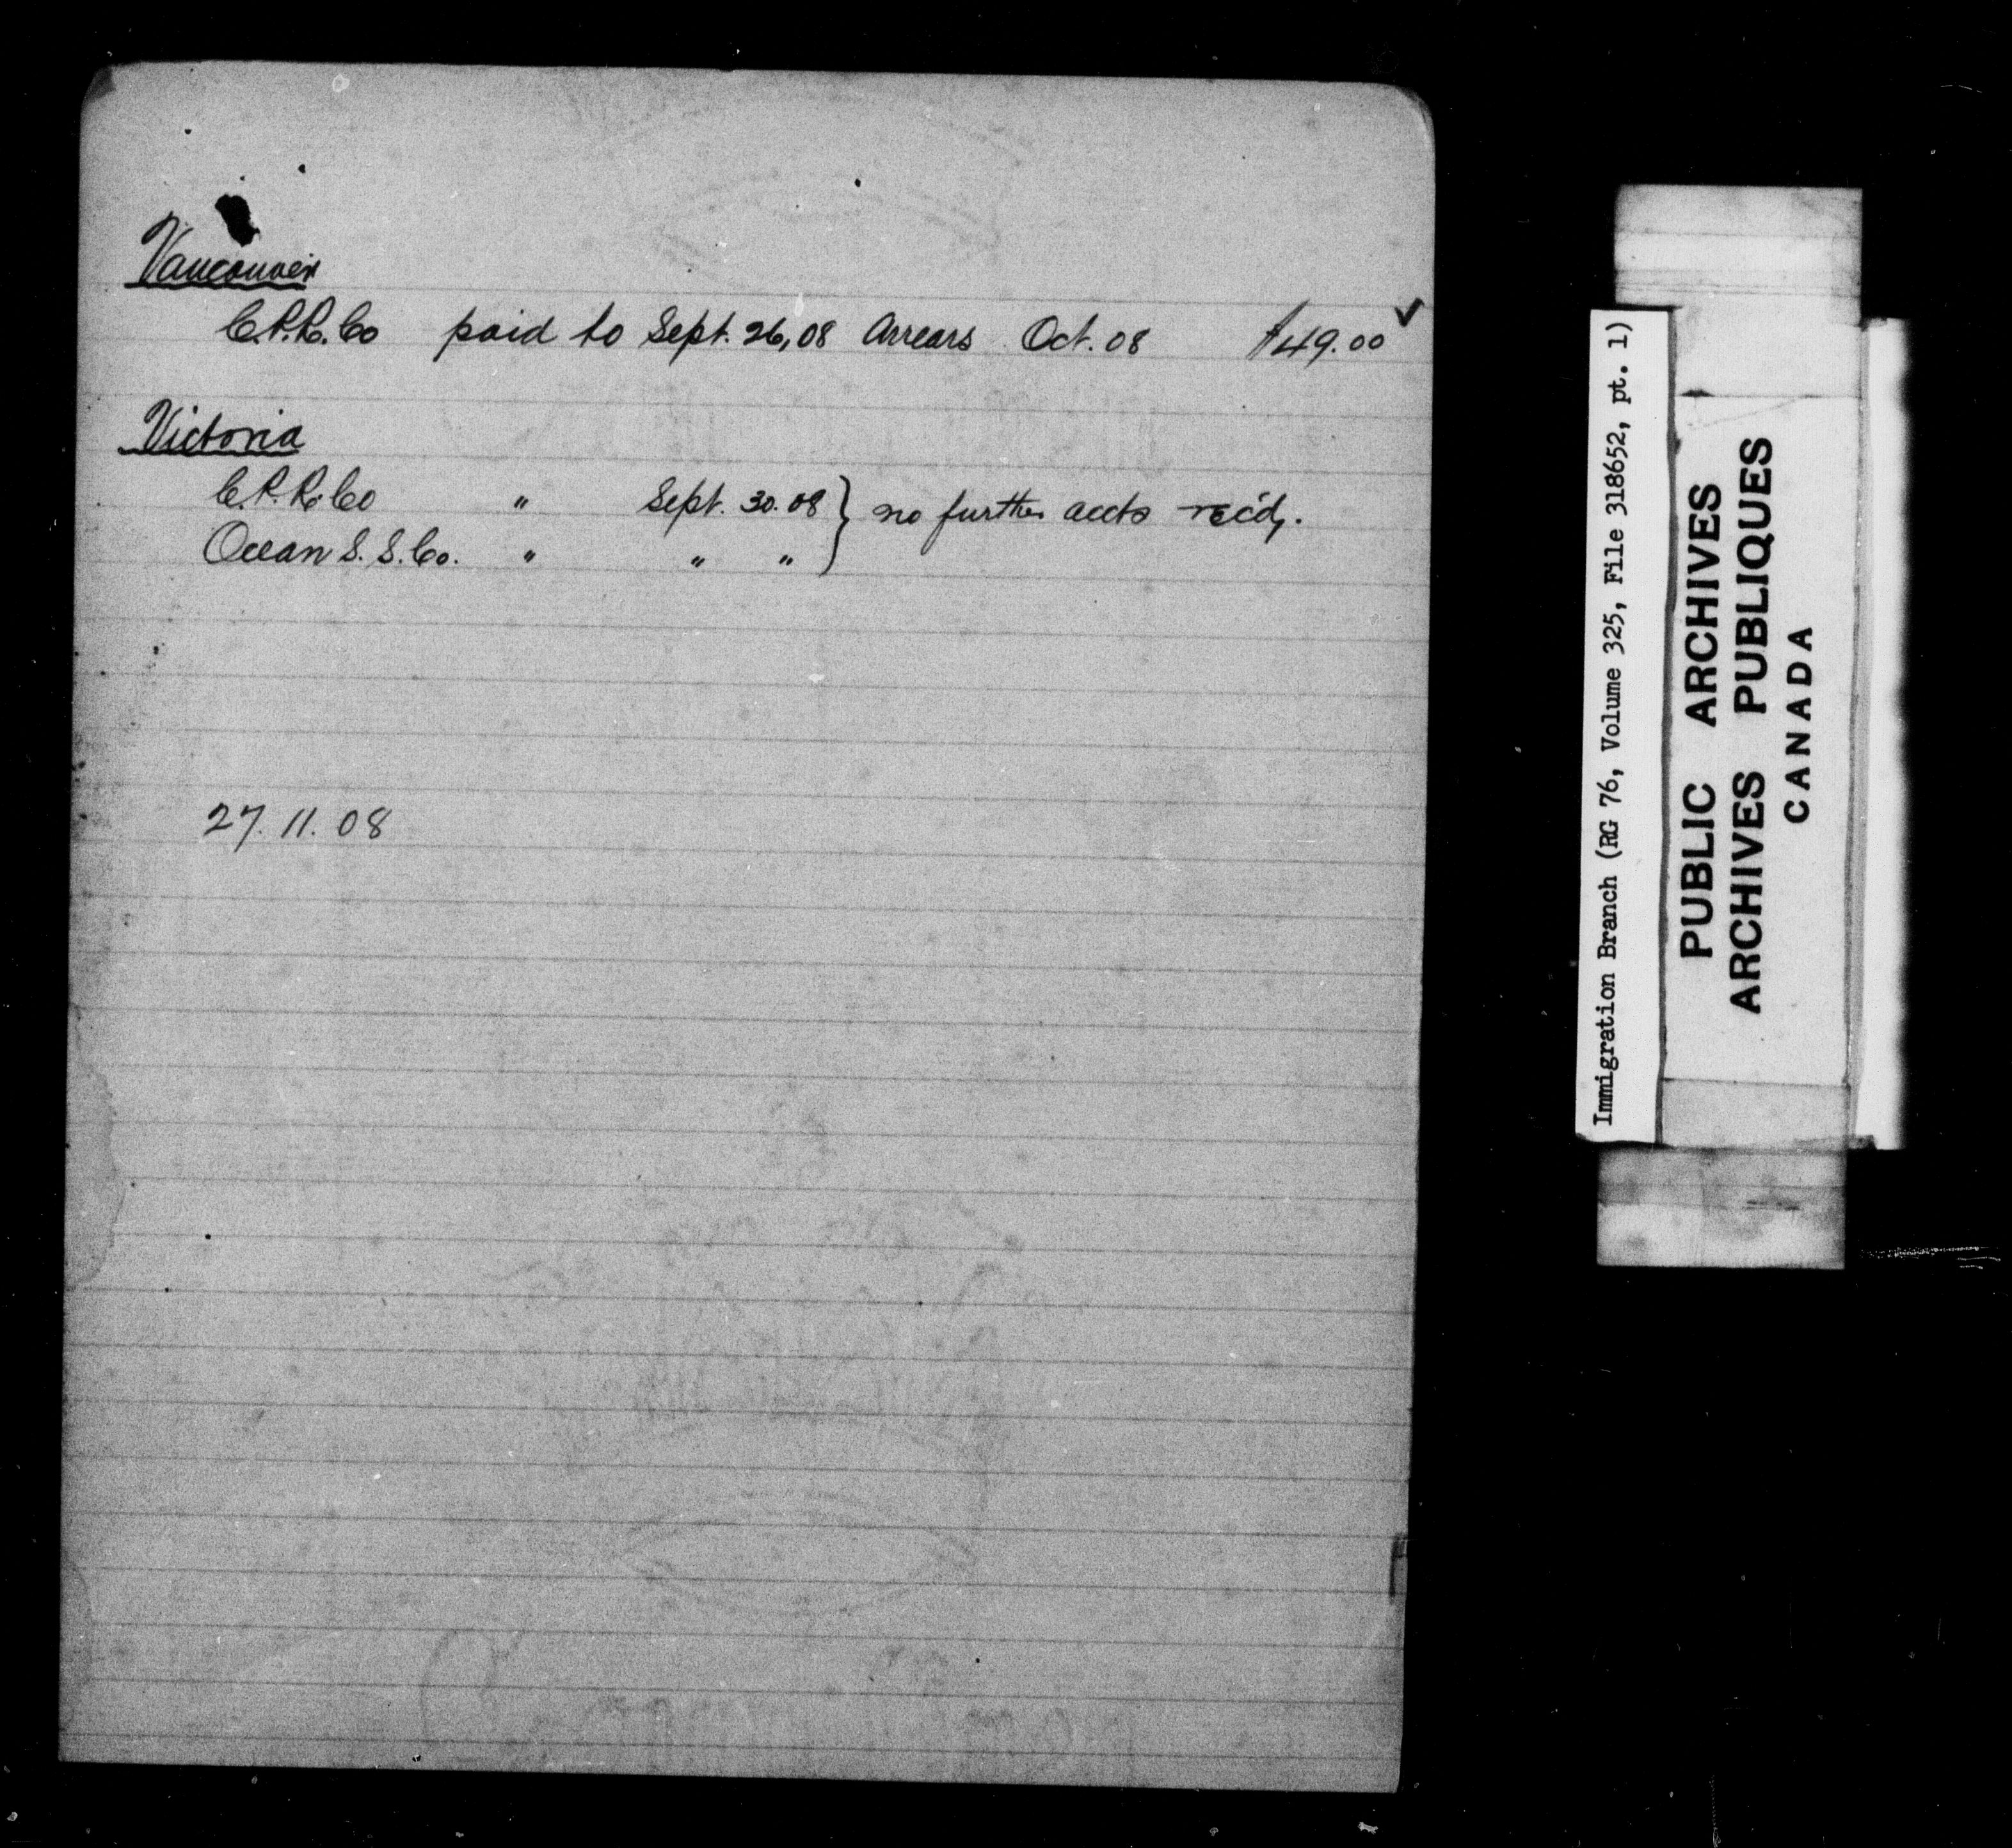 Vancouver
C.P.R. Co paid to Sept. 26, 08 Arrears Oct. 08 $49.00 ✓
Victoria
C.P.R. Co " Sept. 30. 08 } no further accts rec'd,.
Ocean S. S. Co. " " "
27. 11. 08
Immigration Branch (RG 76, Volume 325, File 318652, pt. 1)
PUBLIC ARCHIVES
ARCHIVES PUBLIQUES
CANADA